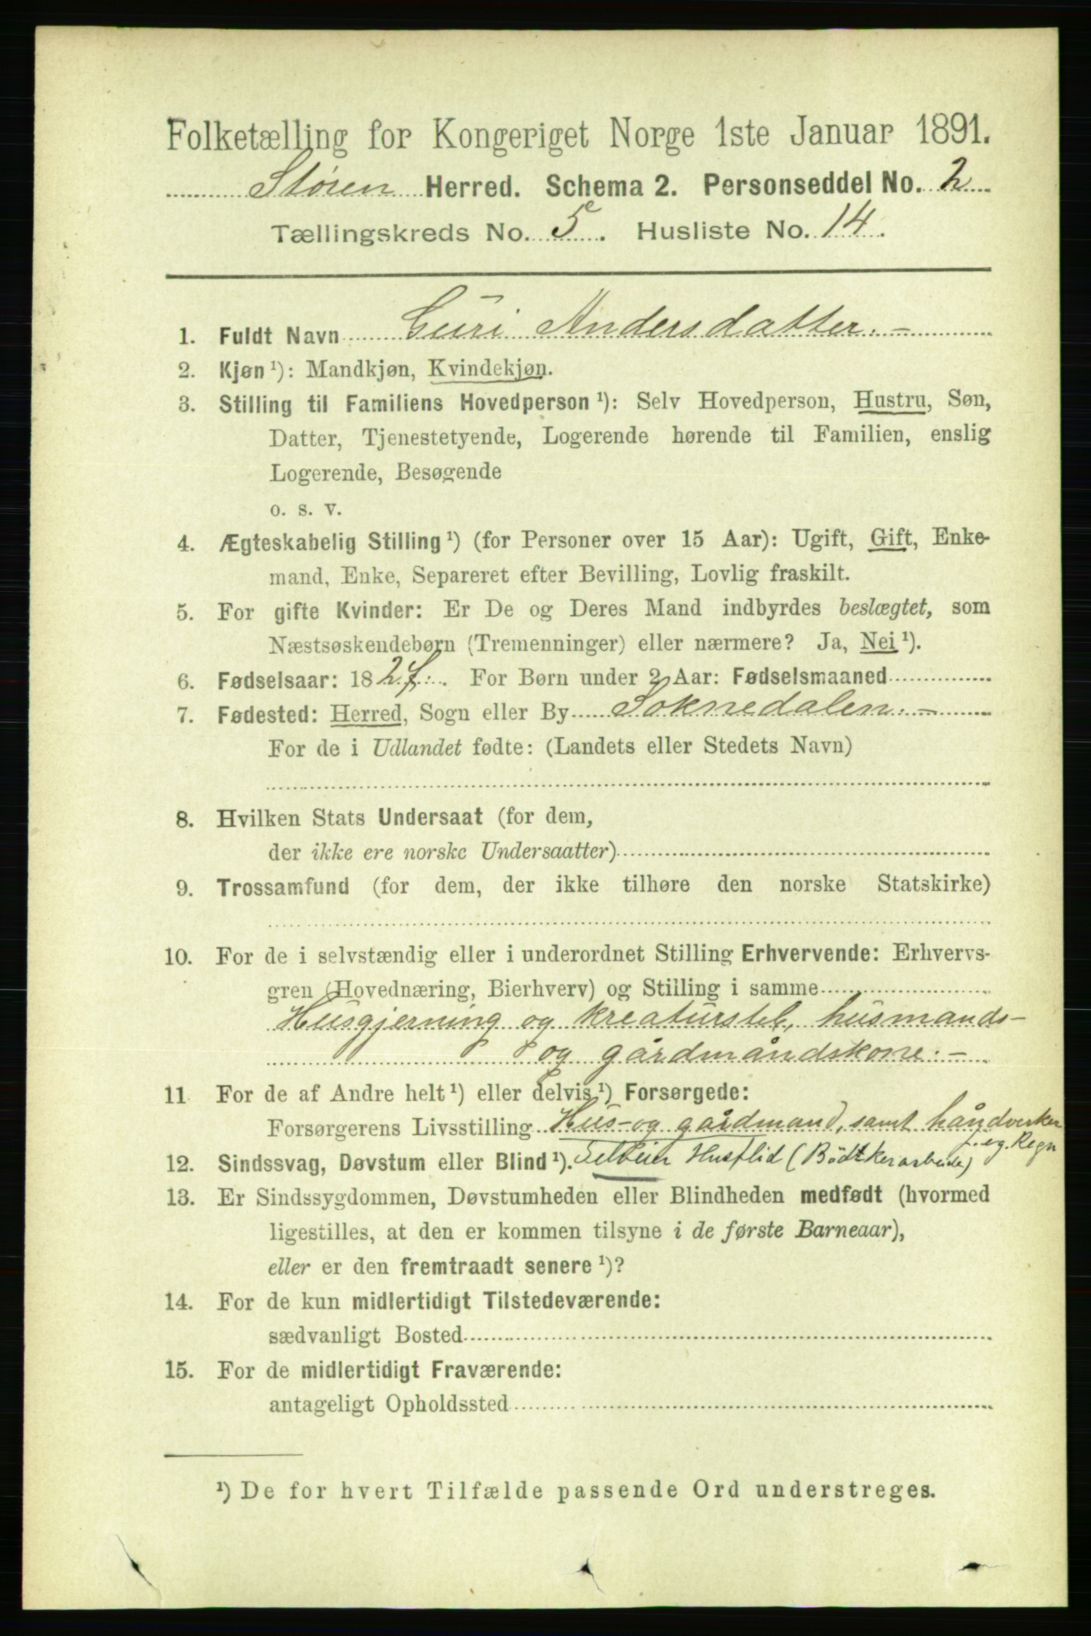 Folketælling for Kongeriget Norge 1ste Januar 1891.
Støren Herred. Schema 2. Personseddel No. 2
Tællingskreds No. 5. Husliste No. 14.
1. Fuldt Navn Guri Andersdatter. –
2. Kjøn ¹): Mandkjøn, Kvindekjøn.
3. Stilling til Familiens Hovedperson ¹): Selv Hovedperson, Hustru, Søn,
Datter, Tjenestetyende, Logerende hørende til Familien, enslig
Logerende, Besøgende
o. s. v.
4. Ægteskabelig Stilling ¹) (for Personer over 15 Aar): Ugift, Gift, Enke-
mand, Enke, Separeret efter Bevilling, Lovlig fraskilt.
5. For gifte Kvinder: Er De og Deres Mand indbyrdes beslægtet, som
Næstsøskendebørn (Tremenninger) eller nærmere? Ja, Nei ¹).
6. Fødselsaar: 182 . For Børn under 2 Aar: Fødselsmaaned
7. Fødested: Herred, Sogn eller By Soknedalen. –
For de i Udlandet fødte: (Landets eller Stedets Navn)
8. Hvilken Stats Undersaat (for dem,
der ikke ere norske Undersaatter)
9. Trossamfund (for dem, der ikke tilhøre den norske Statskirke)
10. For de i selvstændig eller i underordnet Stilling Erhvervende: Erhvervs-
gren (Hovednæring, Bierhverv) og Stilling i samme
Husgjerning og kreaturstel, husmands-
og gårdmåndskone. –
11 For de af Andre helt ¹) eller delvis ¹) Forsørgede:
Forsørgerens Livsstilling Hus- og gaardmand, samt håndverker
f. eg. Regn
12. Sindssvag, Døvstum eller Blind ¹). Husflid (Bødtkerarbeide)
13. Er Sindssygdommen, Døvstumheden eller Blindheden medfødt (hvormed
ligestilles, at den er kommen tilsyne i de første Barneaar),
eller er den fremtraadt senere ¹)?
14. For de kun midlertidigt Tilstedeværende:
sædvanligt Bosted
15. For de midlertidigt Fraværende:
antageligt Opholdssted
¹) De for hvert Tilfælde passende Ord understreges.